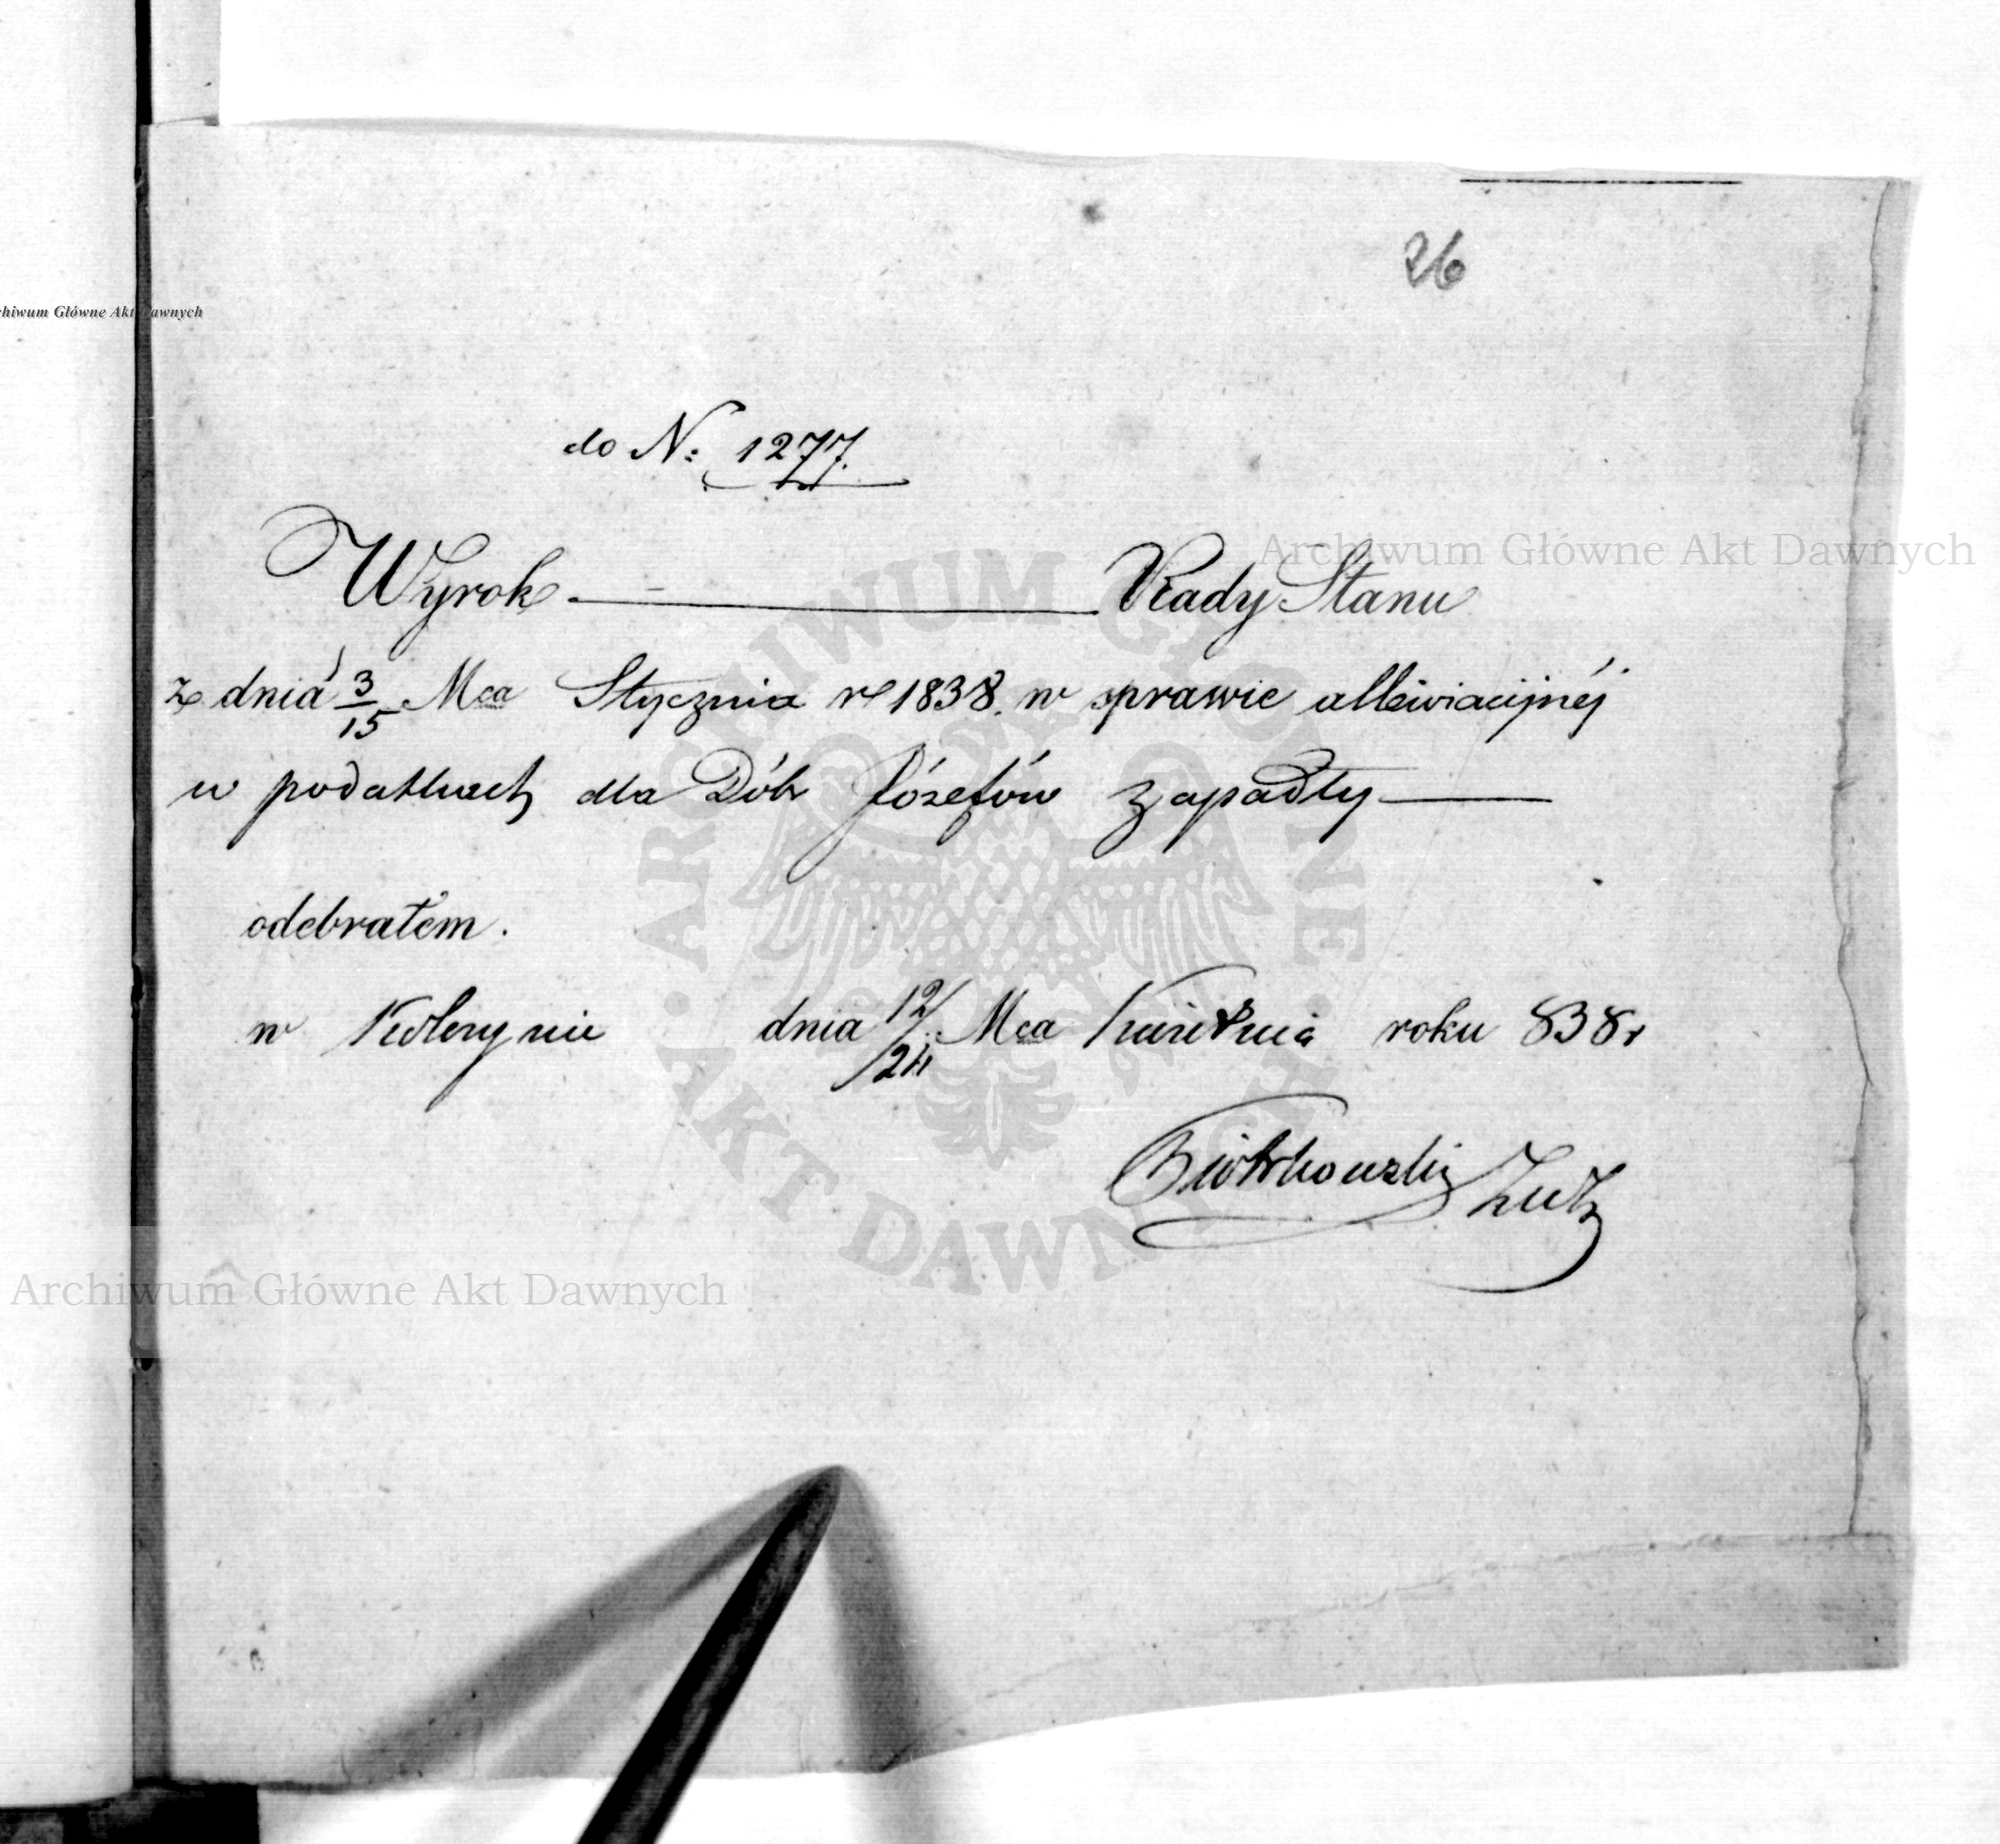 26
do N: 1277.
Wyrok — Rady Stanu
z dnia 3/15 Mca Stycznia r 1838. w sprawie allewiacijnéj
w podatkach dla Dóbr Józefów zapadły —
odebrałem.
w dnia 12/24 Mca Kwietnia roku 838 r
Piotrkowski
Archiwum Główne Akt Dawnych
Archiwum Główne Akt Dawnych
chiwum Główne Akt Dawnych
ARCHIWUM GŁÓWNE · AKT DAWNYCH ·